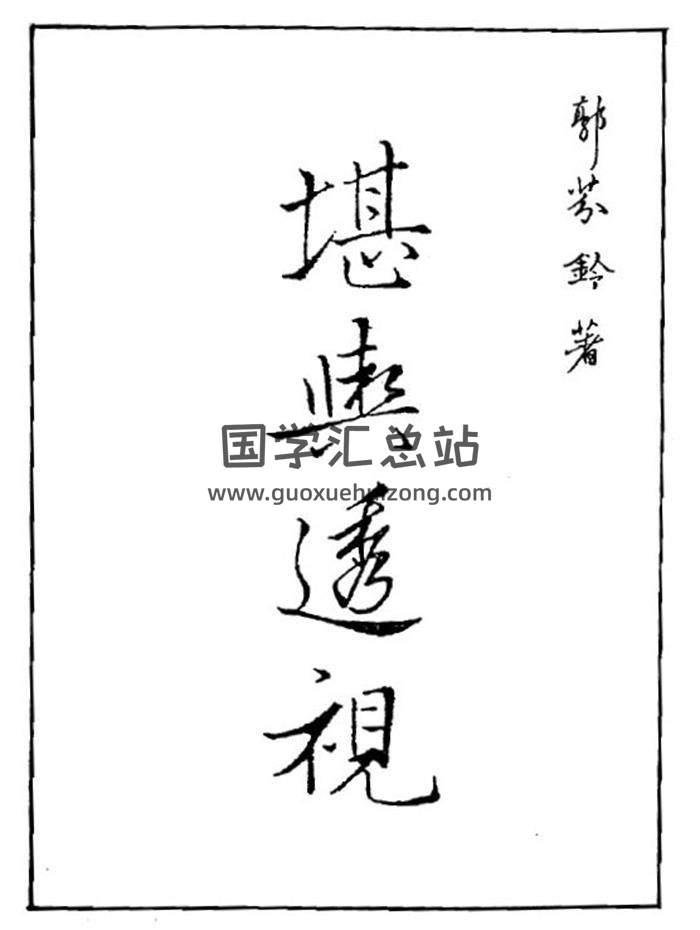 郭芬鈴著
堪輿透視
国学汇总站
www.guoxuehuizong.com